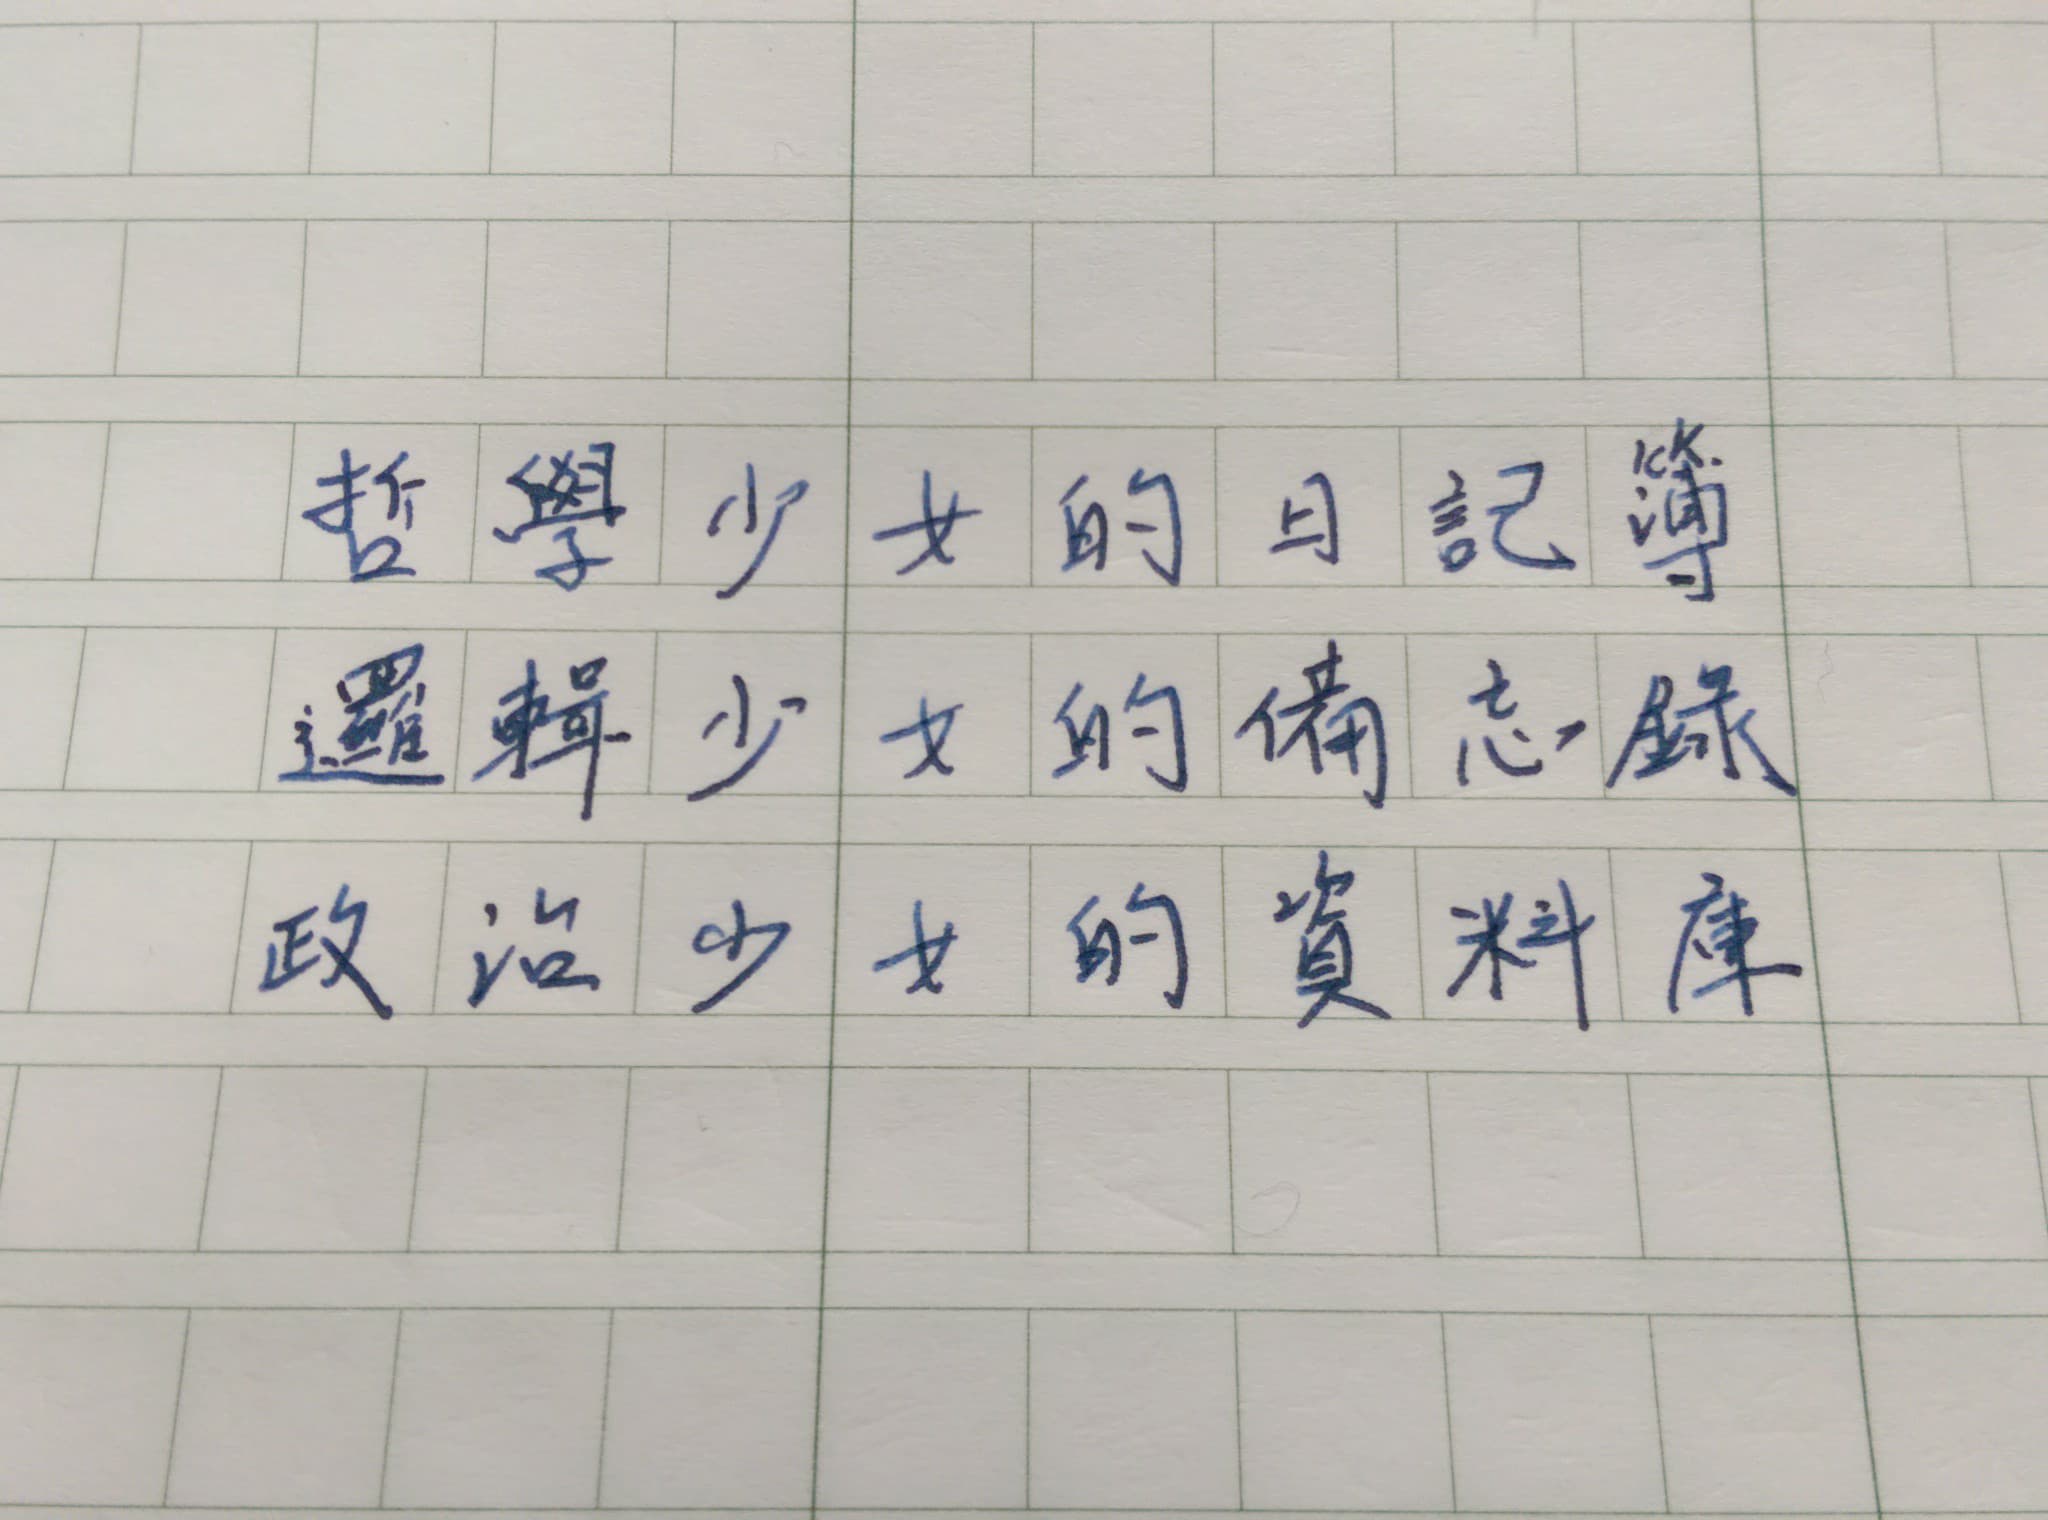 哲學少女的日記簿
邏輯少女的備忘錄
政治少女的資料庫